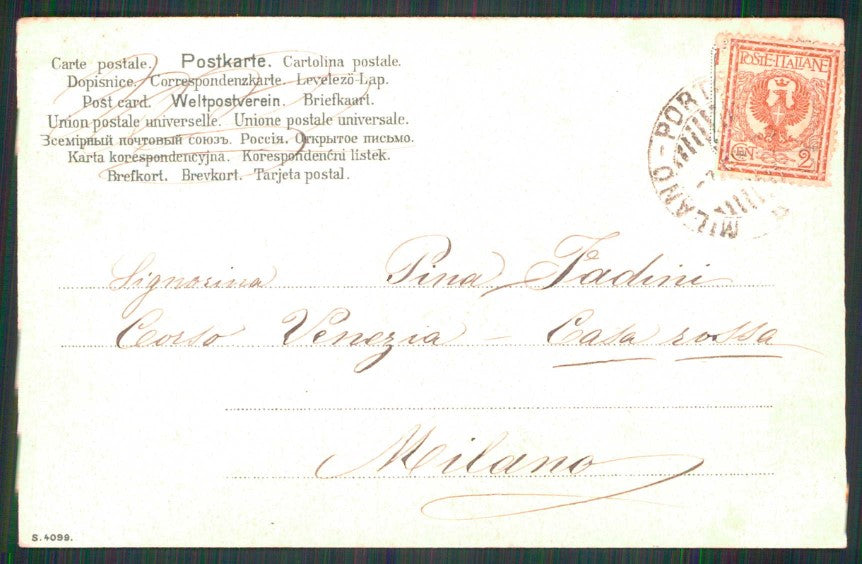 Carte postale. Postkarte. Cartolina postale.
Dopisnice. Correspondenzkarte. Levelező Lap.
Post card. Weltpostverein. Briefkaart.
Union postale universelle. Unione postale universale.
Всемірный почтовый союзъ. Россія. Открытое письмо.
Karta korespondencyjna. Korespondenční listek.
Brefkort. Brevkort. Tarjeta postal.
POSTE·ITALIANE
CEN. 2
MILANO - PORT
Signorina Pina Fadini
Corso Venezia - Casa rossa
Milano
S. 4099.